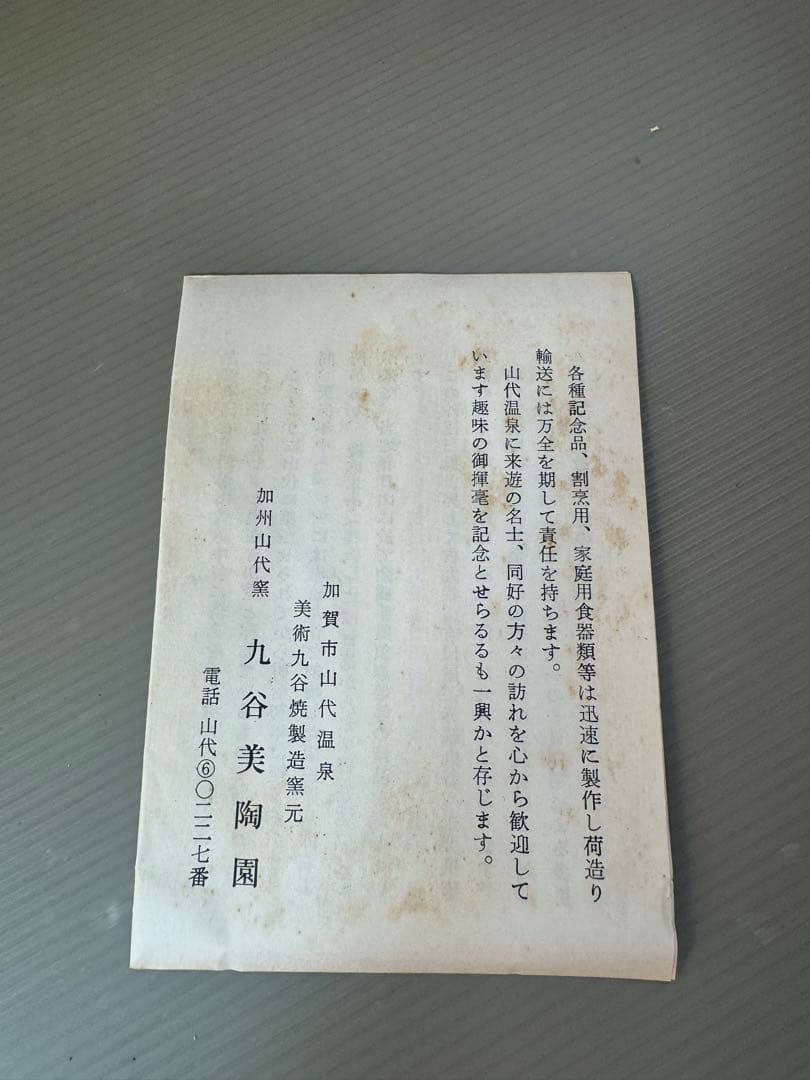 各種記念品、割烹用、家庭用食器類等は迅速に製作し荷造り
輸送には万全を期して責任を持ちます。
山代温泉に来遊の名士、同好の方々の訪れを心から歓迎して
います趣味の御揮毫を記念とせらるるも一興かと存じます。
加賀市山代温泉
美術九谷焼製造窯元
加州山代窯 九谷美陶園
電話 山代⑥〇二二七番